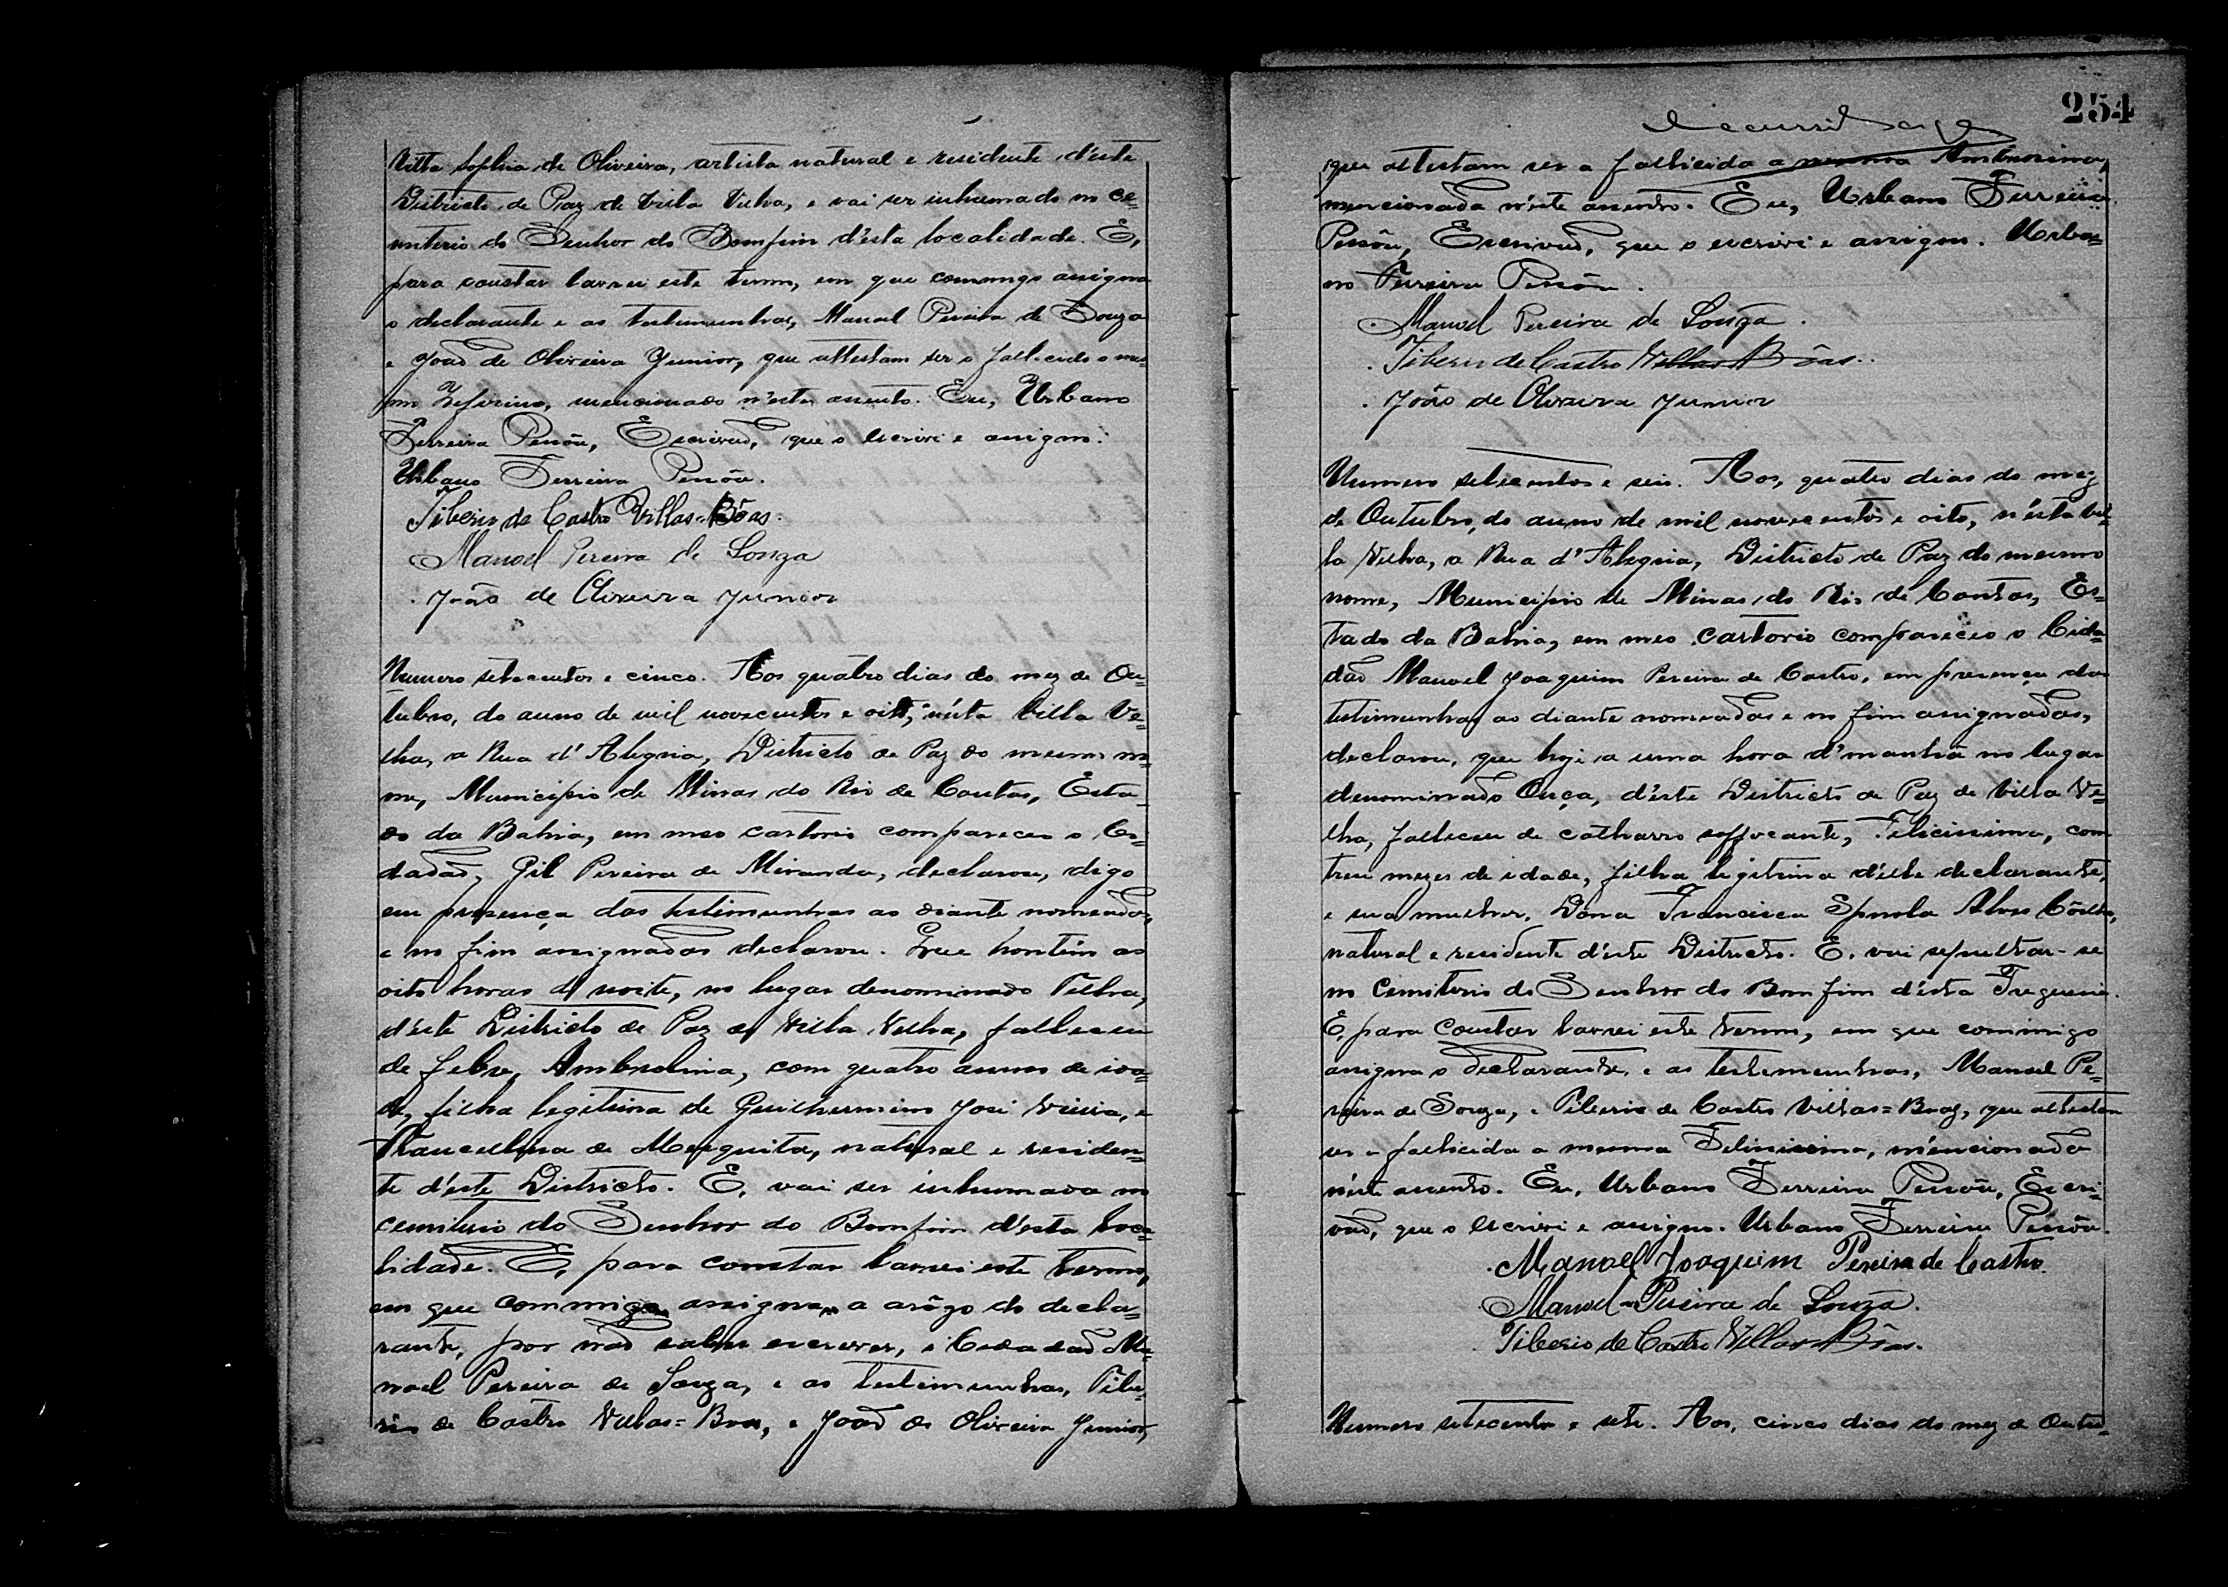 Ritta Sophia de Oliveira, artista natural e residente d'este
Districto de Paz de Villa Velha, e vai ser inhumado no ce-
miterio do Senhor do Bomfim d'esta localidade. E,
para constar lavrei este termo, em que commigo assigna
o declarante e as testemunhas, Manoel Pereira de Souza
e João de Oliveira Junior, que attestam ser o fallecido o mes-
mo Zeferino, mencionado n'este assento. Eu, Urbano
Ferreira Pessôa, Escrivão, que o escrivi e assigno.
Urbano Ferreira Pessôa.
Tiberio de Castro Villas-Bôas.
Manoel Pereira de Souza
João de Oliveira Junior
Numero setecentos e cinco. Aos quatro dias do mez de Ou-
tubro, do anno de mil novecentos e oito, n'esta Villa Ve-
lha, a Rua d'Alegria, Districto de Paz do mesmo no-
me, Municipio de Minas do Rio de Contas, Esta-
do da Bahia, em meo cartorio compareceo o Ci-
dadão, Gil Pereira de Miranda, declarou, digo
em presença das testimunhas ao diante nomeadas,
e no fim assignadas declarou. Que hontem as
oito horas da noite, no lugar denominado Telha,
d'este Districto de Paz de Villa Velha, falleceu
de febre, Ambrolina, com quatro annos de ida-
de, filha legitima de Guilhermino José Vieira, e
Francellina de Mesquita, natural e residen-
te d'este Districto. E, vai ser inhumada no
cemiterio do Senhor do Bomfim d'esta loca-
lidade. E, para constar lavrei este termo,
em que commigo assigna, a arôgo do decla-
rante, por não saber escrever, o Cidadão Ma-
noel Pereira de Souza, e as testimunhas, Tibe-
rio de Castro Villas=Boas, e João de Oliveira Junior,
254
que attestam ser a fallecida a mesma Ambrosina,
mencionada n'este assento. Eu, Urbano Ferreira
Pessôa, Escrivão, que o escrivi e assigno. Urba-
no Ferreira Pessôa.
Manoel Pereira de Souza.
Tiberio de Castro Villas Bôas.
João de Oliveira Junior
Numero setecentos e seis. Aos, quatro dias do mez
de Outubro, do anno de mil novecentos e oito, n'esta Vil-
la Velha, a Rua d'Alegria, Districto de Paz do mesmo
nome, Municipio de Minas do Rio de Contas, Es-
tado da Bahia, em meo cartorio compareceo o Cida-
dão Manoel Joaquim Pereira de Castro, em presença das
testimunhas ao diante nomeadas e no fim assignadas,
declarou, que hoje a uma hora d'manhã no lugar
denominado Onça, d'este Districto de Paz de Villa Ve-
lha, falleceu de catharro soffocante, Felicissima, com
tres mezes de idade, filha legitima d'elle declarante,
e sua mulher, Dona Francisca Spnola Alves Côelho,
natural e residente d'este Districto. E, vai sepultar-se
no Cemiterio do Senhor do Bomfim d'esta Freguesia.
E, para constar lavrei este termo, em que commigo
assigna o declarante, e as testemunhas, Manoel Pe-
reira de Souza, e Tiberio de Castro Villas=Boas, que attestam
ser a fallecida a mesma Felinissima, mencionada
n'este assento. Eu, Urbano Ferreira Pessôa, Escri-
vão, que o escrivi e assigno. Urbano Ferreira Pessôa.
Manoel Joaquim Pereira de Castro.
Manoel Pereira de Souza.
Tiberio de Castro Villas Bôas.
Numero setecentos e sete. Aos, cinco dias do mez de Outu-